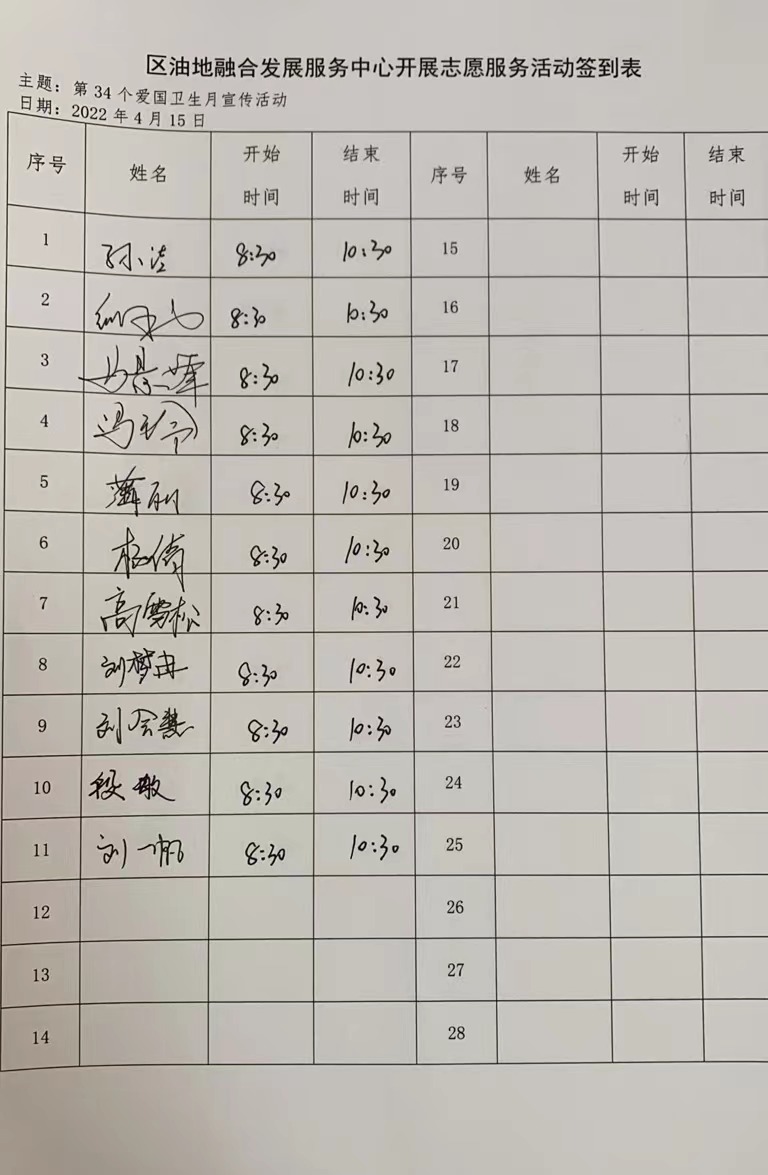 区油地融合发展服务中心开展志愿服务活动签到表
主题：第34个爱国卫生月宣传活动
日期：2022年4月15日
序号 姓名 开始时间 结束时间 序号 姓名 开始时间 结束时间
1 孙洁 8:30 10:30 15
2 8:30 10:30 16
3 8:30 10:30 17
4 冯 8:30 10:30 18
5 薄丽 8:30 10:30 19
6 杨倩 8:30 10:30 20
7 高雪松 8:30 10:30 21
8 刘梦冉 8:30 10:30 22
9 刘会慧 8:30 10:30 23
10 段敏 8:30 10:30 24
11 刘一帆 8:30 10:30 25
12 26
13 27
14 28